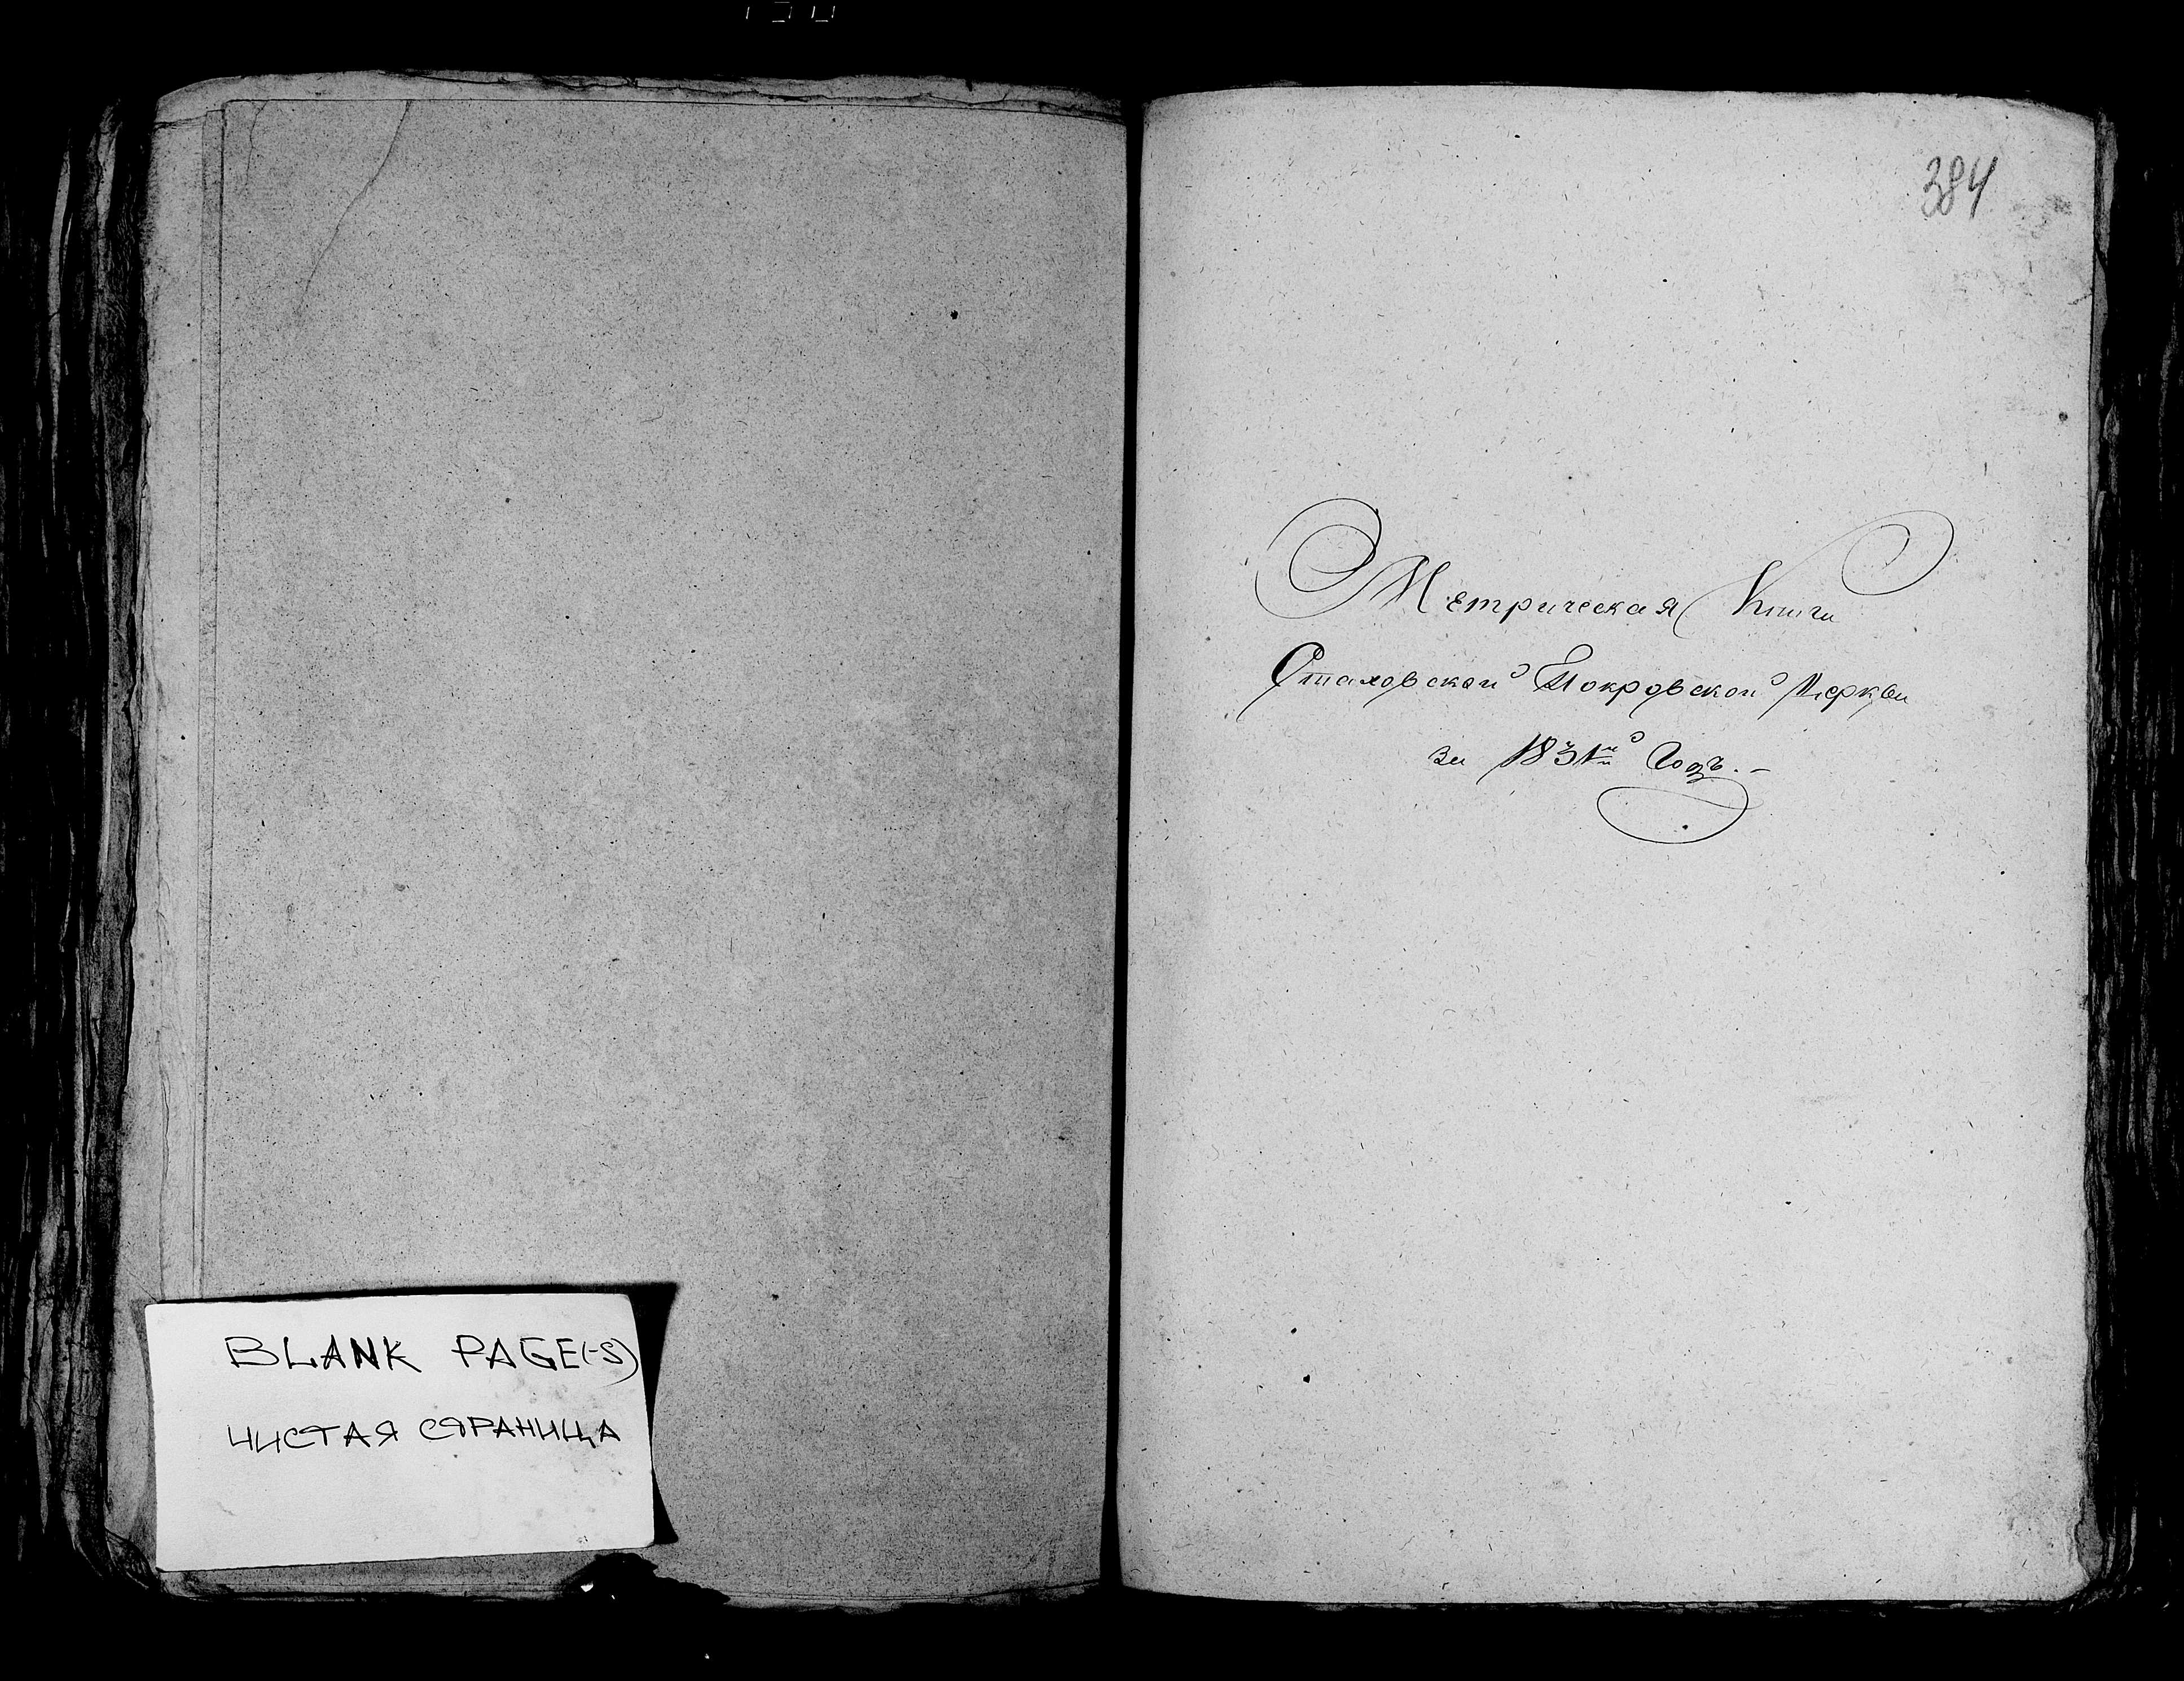 BLANK PAGE(-S)
ЧИСТАЯ СТРАНИЦА
384
Метрическая Книга
Сталовской Покровской Церкви
за 1831й Годъ.-